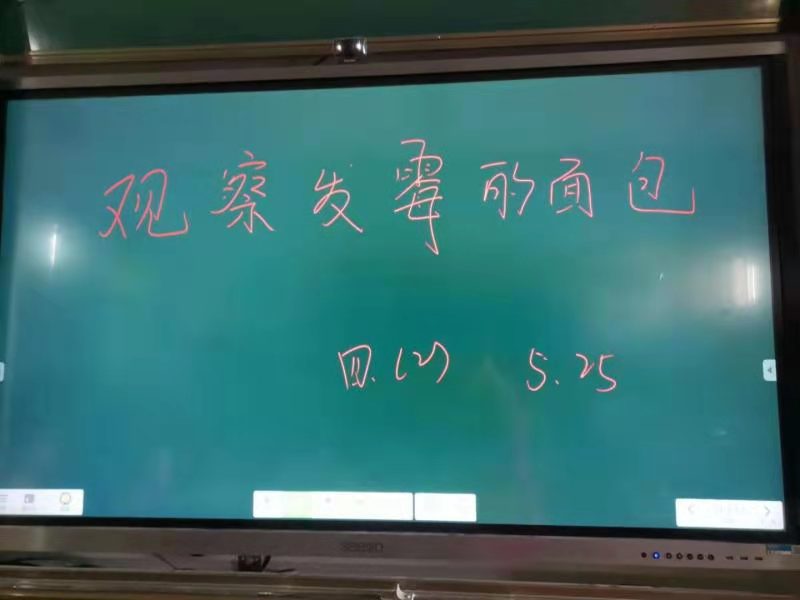 观察发霉的面包
四.(2) 5.25